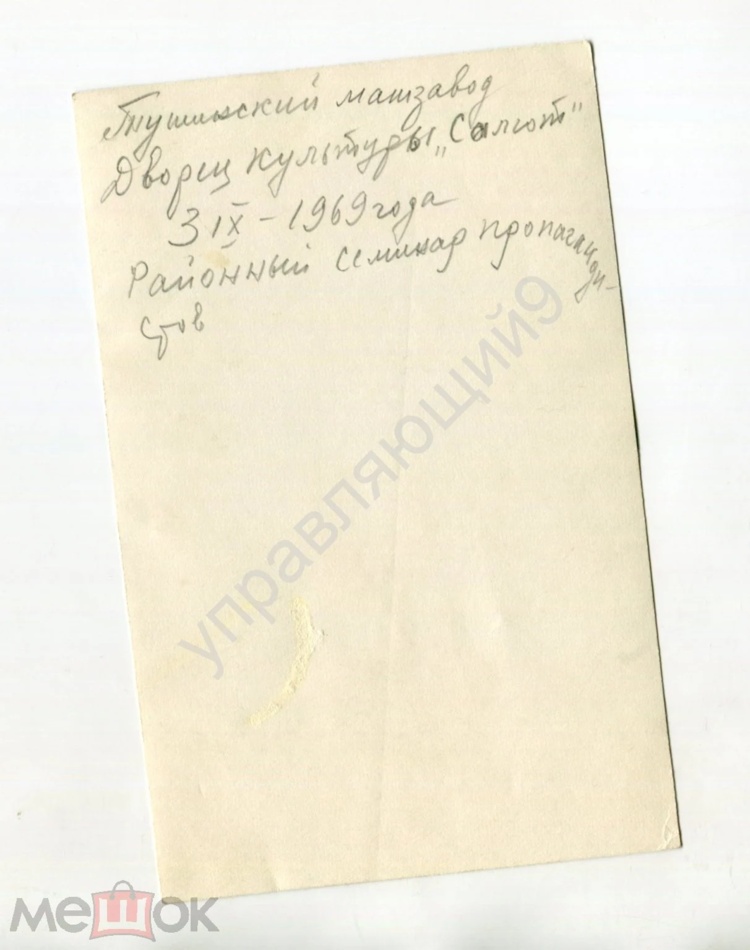 Тушинский машзавод
Дворец культуры „Салют"
3 IX – 1969 года
Районный семинар пропаганди-
стов
управляющий9
мешок